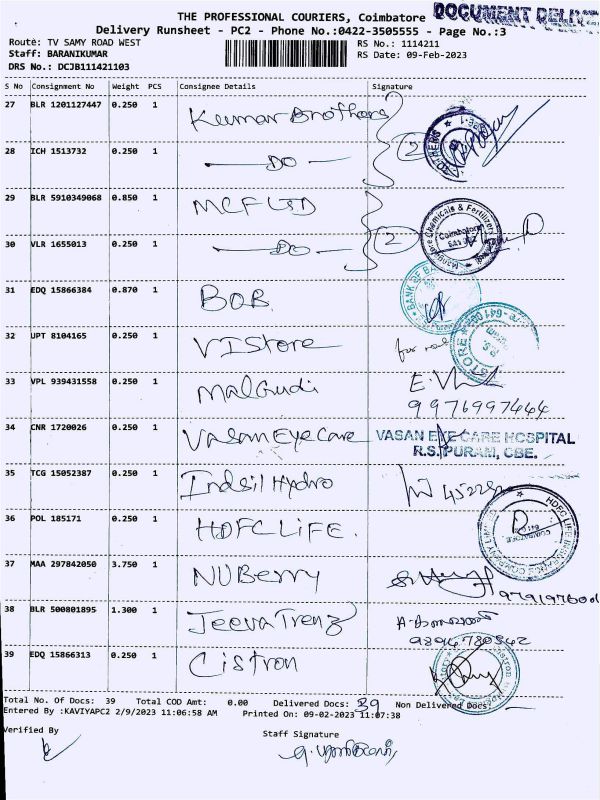 THE PROFESSIONAL COURIERS, Coimbatore
DOCUMENT DELIV
Delivery Runsheet - PC2 - Phone No.:0422-3505555 - Page No.:3
Route: TV SAMY ROAD WEST
RS No.: 1114211
Staff: BARANIKUMAR
RS Date: 09-Feb-2023
DRS No.: DCJB111421103
S No Consignment No Weight PCS Consignee Details Signature
27 BLR 1201127447 0.250 1 Kumar Brothers
28 ICH 1513732 0.250 1 — DO — 2
29 BLR 5910349068 0.850 1 MCF LTD
30 VLR 1655013 0.250 1 — DO — 2
Mangalore Chemicals & Fertilizers
Coimbatore
31 EDQ 15866384 0.870 1 BOB
BANK OF BA
32 UPT 8104165 0.250 1 VI Store for
STORE
33 VPL 939431558 0.250 1 Malgudi
9976997444
34 CNR 1720026 0.250 1 Vasan Eye Care VASAN EYE CARE HOSPITAL
R.S. PURAM, CBE.
35 TCG 15052387 0.250 1 Indsil Hydro
36 POL 185171 0.250 1 HDFC LIFE.
HDFC LIFE INSURANCE COMPANY LIMITED
37 MAA 297842050 3.750 1 NUBerry
38 BLR 500801895 1.300 1 Jeeva Trenz
9894780542
39 EDQ 15866313 0.250 1 Cistron
Total No. Of Docs: 39 Total COD Amt: 0.00 Delivered Docs: 39 Non Delivered Docs:
Entered By :KAVIYAPC2 2/9/2023 11:06:58 AM Printed On: 09-02-2023 11:07:38
Verified By
Staff Signature